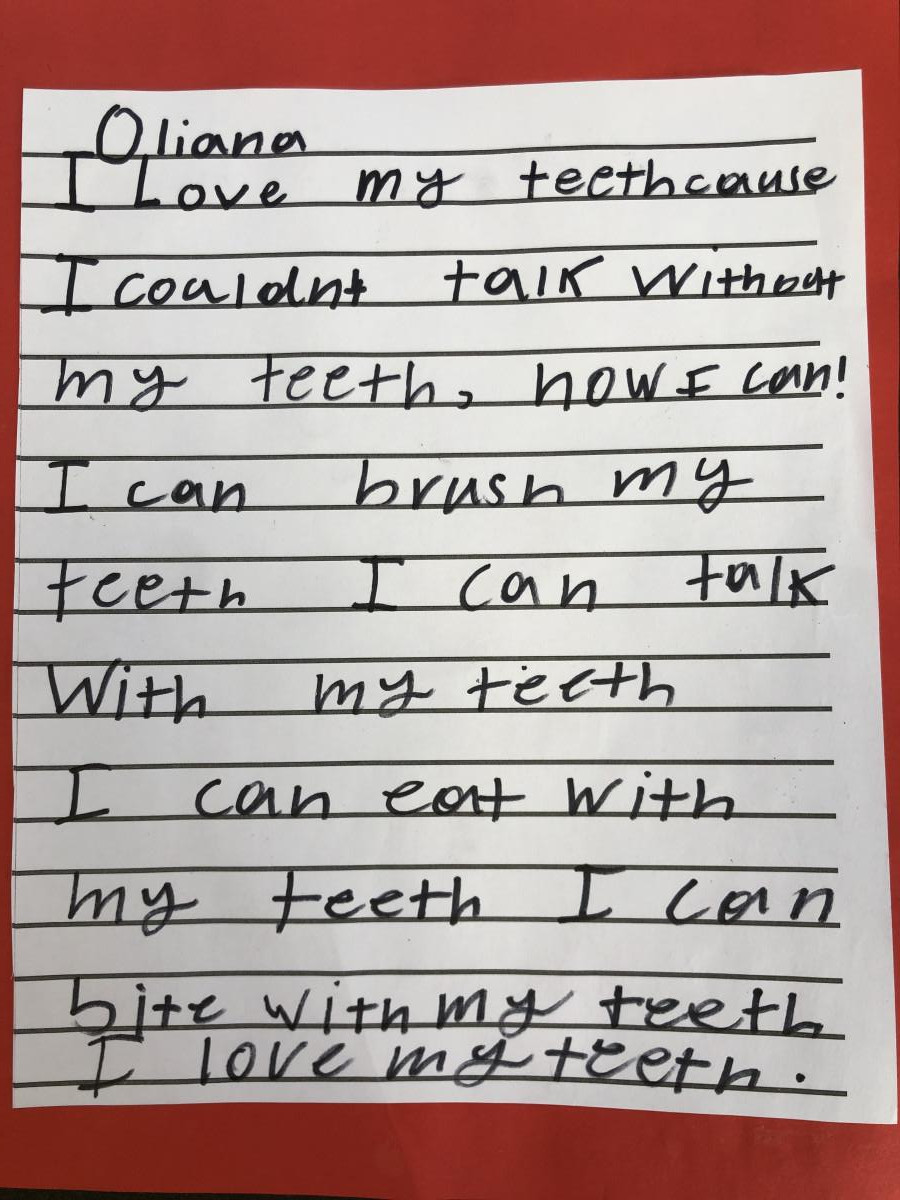 Oliana
I Love my teeth cause
I couldnt talk without
my teeth, now I can!
I can brush my
teeth I can talk
With my teeth
I can eat with
my teeth I can
bite with my teeth
I love my teeth.